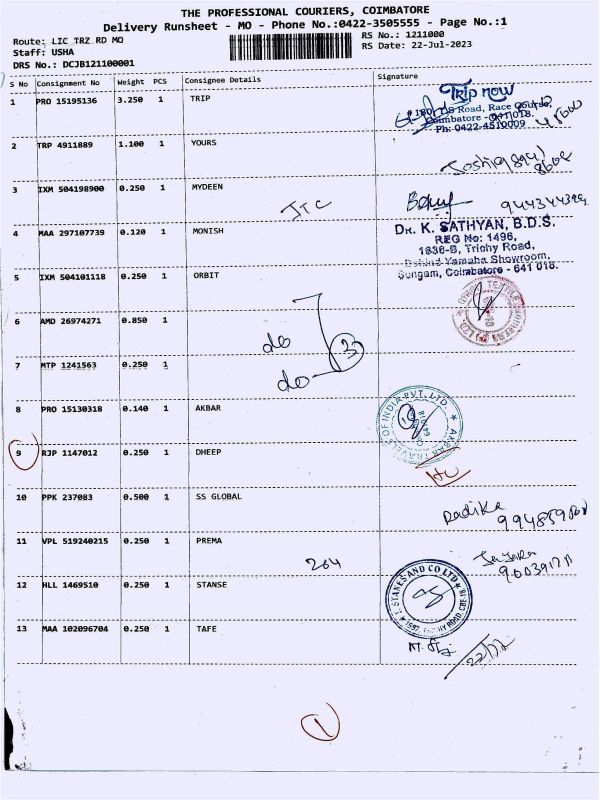 THE PROFESSIONAL COURIERS, COIMBATORE
Delivery Runsheet - MO - Phone No.:0422-3505555 - Page No.:1
Route: LIC TRZ RD MO
Staff: USHA
DRS No.: DCJB121100001
RS No.: 1211000
RS Date: 22-Jul-2023
S No Consignment No Weight PCS Consignee Details Signature
1 PRO 15195136 3.250 1 TRIP
Trip now
Road, Race Course,
Coimbatore - 641 018.
Ph: 0422-4510009
2 TRP 4911889 1.100 1 YOURS
3 IXM 504198900 0.250 1 MYDEEN
4 MAA 297107739 0.120 1 MONISH
DR. K. SATHYAN, B.D.S.
REG No: 1496,
1836-B, Trichy Road,
Behind Yamaha Showroom,
Sungam, Coimbatore - 641 018.
5 IXM 504101118 0.250 1 ORBIT
6 AMD 26974271 0.850 1
do
3
7 MTP 1241563 0.250 1
do
8 PRO 15130318 0.140 1 AKBAR
AKBAR TRAVELS OF INDIA PVT. LTD.
9 RJP 1147012 0.250 1 DHEEP
10 PPK 237083 0.500 1 SS GLOBAL
Radika
11 VPL 519240215 0.250 1 PREMA
264
12 HLL 1469510 0.250 1 STANSE
T. STANES AND CO LTD
13 MAA 102096704 0.250 1 TAFE
22/7
1